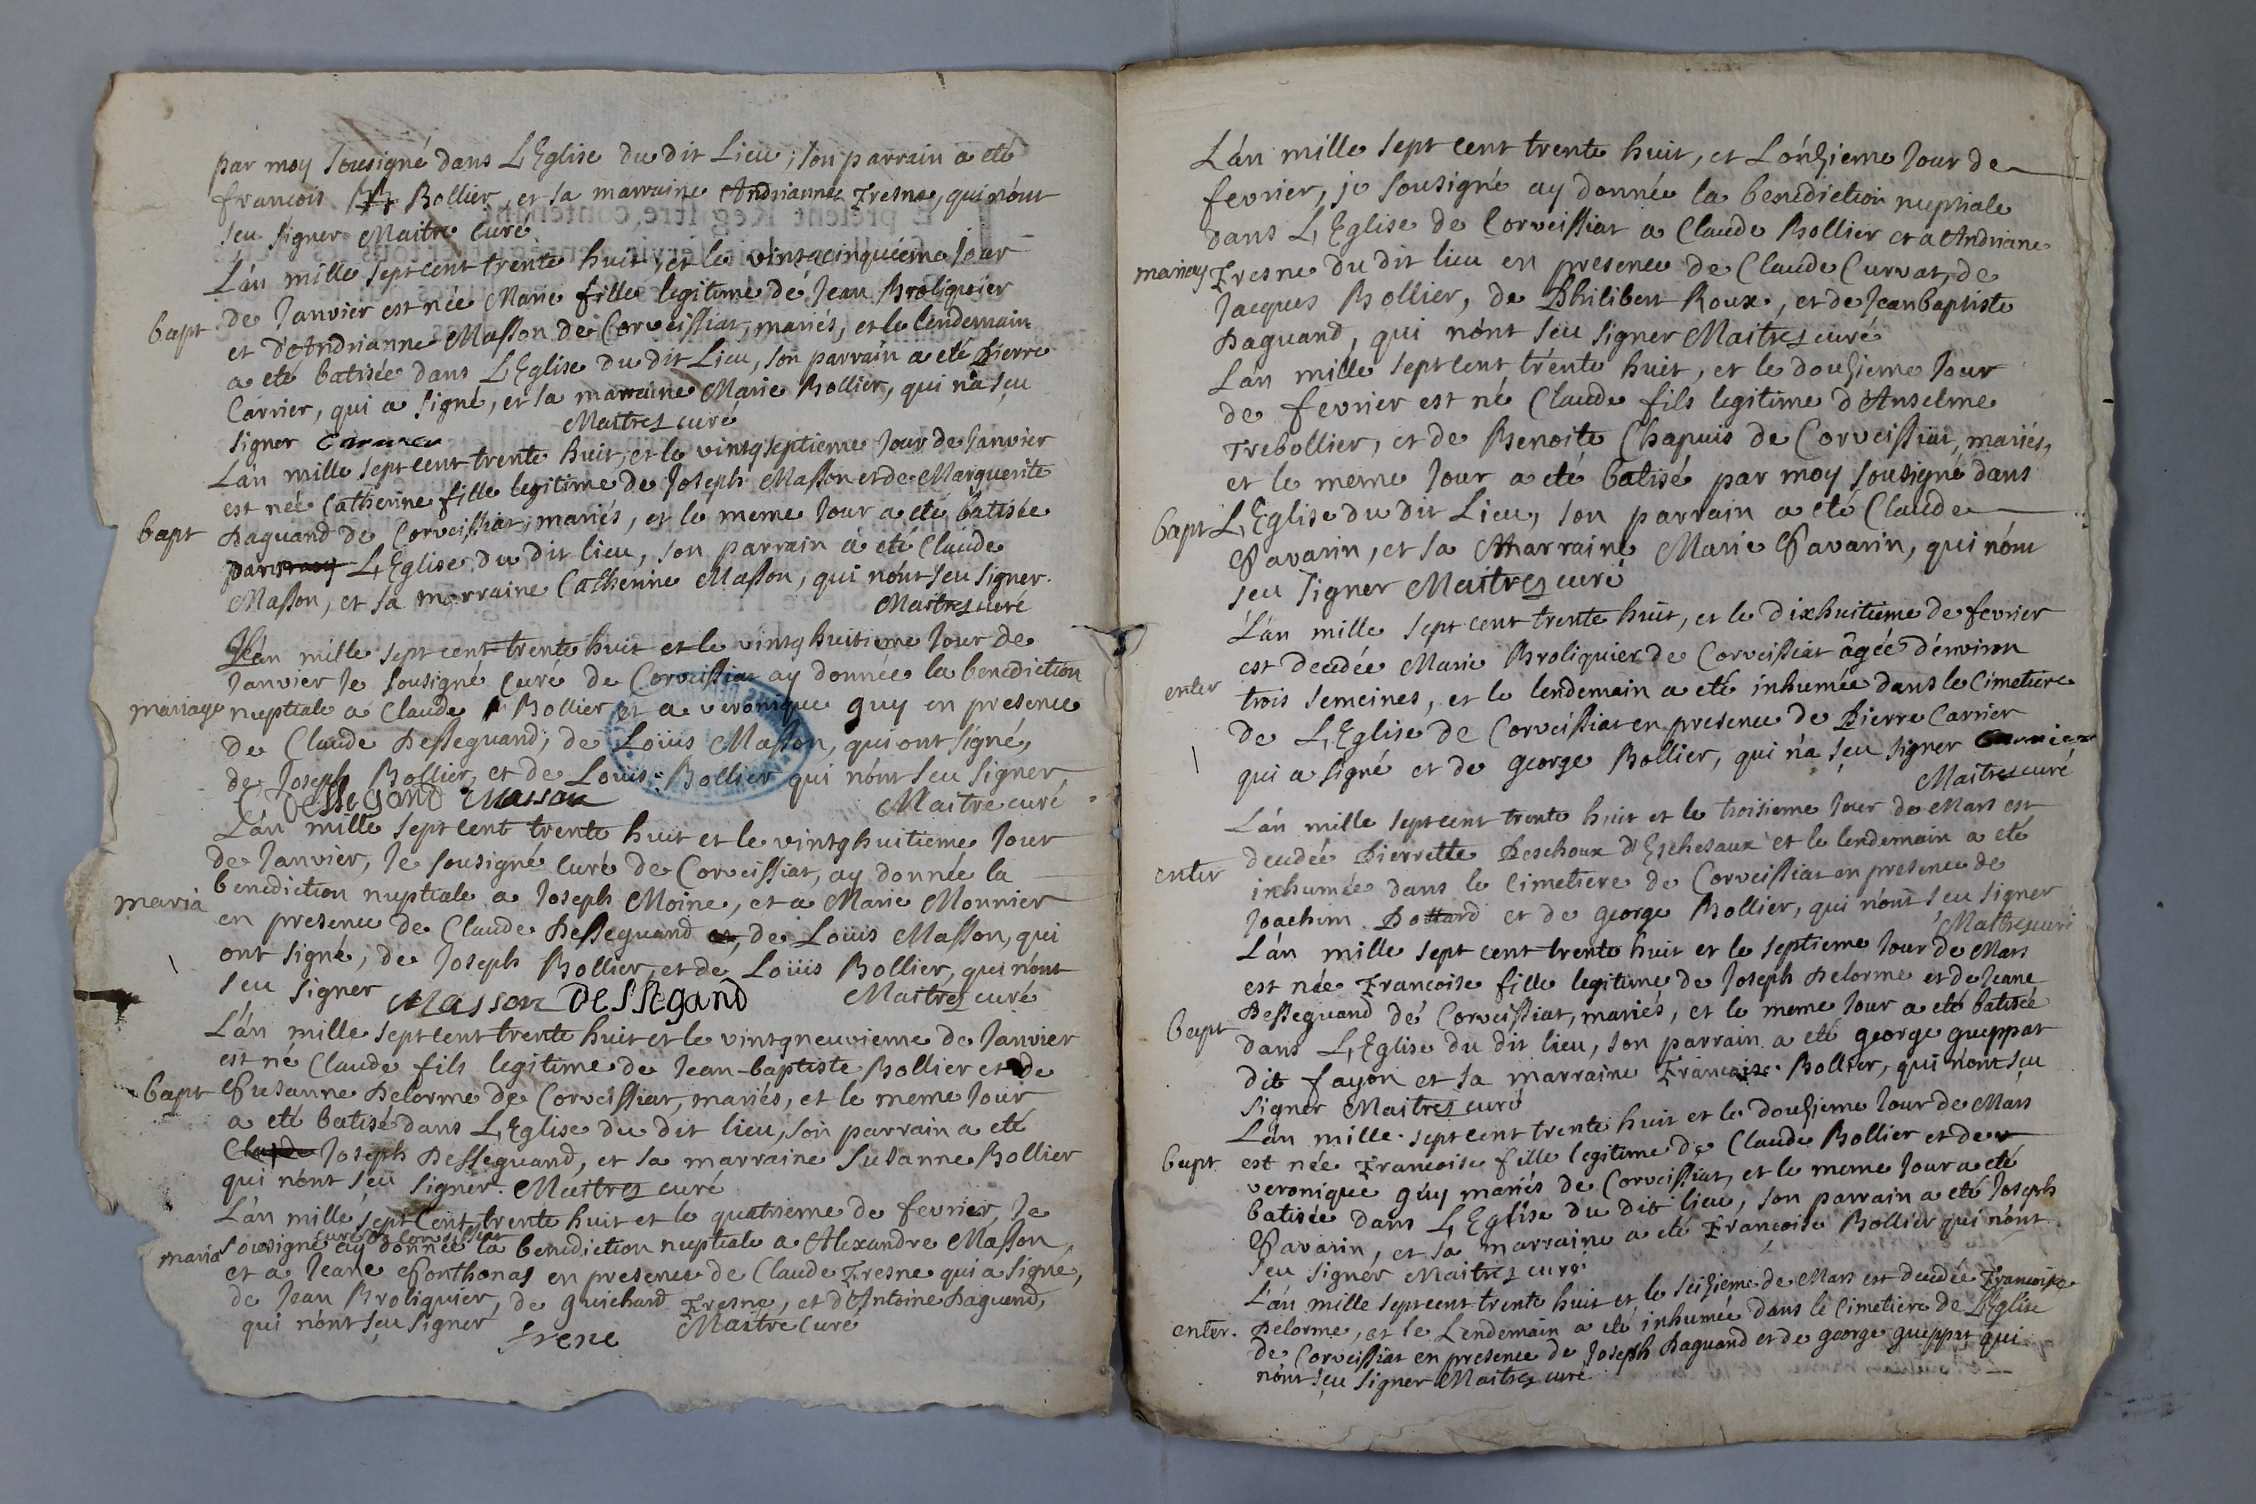 par moy sousigné dans L'Eglise du dit Lieu; son parrain a eté
francois Bollier, et sa marraine Andrianne Fresne, qui n'ont
seu signer Maitre curé
L'án mille sept cent trente huit, et le vintgcinquiéme Jour
de Janvier est née Marie fille legitime de Jean Broliquier
bapt
et d'Andrianne Masson de Corveissiat, mariés, et le lendemain
a eté batisée dans L'Eglise du dit Lieu, son parrain a eté Pierre
Carrier, qui a signé, et sa marraine Marie Bollier, qui n'a seu
signer Carrier Maitrez curé
L'án mille sept cent trente huit, et le vintgseptieme Jour de Janvier
est née Catherine fille legitime de Joseph Masson et de Marguerite
bapt Paguand de Corveissiat, mariés, et le meme Jour a eté batisée
par moy L'Eglise du dit lieu, son parrain a eté Claude
Masson, et sa marraine Catherine Masson, qui n'ont seu signer.
Maitrez curé
L'án mille sept cent trente huit et le vintghuitieme Jour de
Janvier Je sousigné curé de Corveissiat ay donnée la benediction
mariage nuptiale a Claude Bollier et a veronique guy en presence
de Claude Desseguand, de Loüis Masson, qui ont signé,
de Joseph Bollier, et de Loüis Bollier qui n'ont seu signer,
Dessegand Masson Maitre curé
L'án mille sept cent trente huit et le vintghuitieme Jour
de Janvier, Je sousigné curé de Corveissiat, ay donnée la
benediction nuptiale a Joseph Moine, et a Marie Monnier
maria
en presence de Claude Desseguand et, de Loüis Masson, qui
ont signé, de Joseph Bollier, et de Loüis Bollier, qui n'ont
seu signer Masson Dessegand Maitrez curé
L'án mille sept cent trente huit et le vintgneuvieme de Janvier
est né Claude fils legitime de Jean-baptiste Bollier et de
bapt Susanne Delorme de Corveissiat, mariés, et le meme Jour
a eté batisé dans L'Eglise du dit lieu, son parrain a eté
Claude Joseph Desseguand, et sa marraine Susanne Bollier
qui n'ont seu signer. Maitrez curé
L'án mille sept cent trente huit et le quatrieme de fevrier, Je
curé de Corveissiat
maria sousigné ay donnée la benediction nuptiale a Alexandre Masson,
et a Jeane Ponthonas en presence de Claude Fresne qui a signé,
de Jean Broliquier, de guichard Fresne, et d'Antoine Paguand,
qui n'ont seu signer frene Maitre curé
L'án mille sept cent trente huit, et L'onzieme Jour de
fevrier, je sousigné ay donnée la benediction nuptiale
dans L'Eglise de Corveissiat a Claude Bollier et a Andriane
mariag Fresne du dit lieu en presence de Claude Curvat, de
Jacques Bollier, de Philibert Roux, et de Jeanbaptiste
Paguand, qui n'ont seu signer Maitrez curé
L'án mille sept cent trente huit, et le douzieme Jour
de fevrier est né Claude fils legitime d'Anselme
Trebollier, et de Benoite Chapuis de Corveissiat, mariés,
et le meme Jour a eté batisé par moy sousigné dans
bapt L'Eglise du dit Lieu, son parrain a eté Claude
Savarin, et sa Marraine Marie Savarin, qui n'ont
seu signer Maitrez curé
L'án mille sept cent trente huit, et le dixhuitieme de fevrier
est decedée Marie Broliquier de Corveissiat âgée d'environ
enter trois semeines, et le lendemain a eté inhumée dans le Cimetiere
de L'Eglise de Corveissiat en presence de Pierre Carrier
qui a signé et de george Bollier, qui n'a seu signer Carrier
Maitrez curé
L'án mille sept cent trente huit et le troisieme Jour de Mars est
decedée Pierrette Deschoux d'Eschesaux et le lendemain a eté
enter inhumée dans le Cimetiere de Corveissiat en presence de
Joachim Dottard et de george Bollier, qui n'ont seu signer
Maitrez curé
L'án mille sept cent trente huit et le septieme Jour de Mars
est née Francoise fille legitime de Joseph Delorme et de Jeane
Desseguand de Corveissiat, mariés, et le meme Jour a eté batisée
bapt dans L'Eglise du dit lieu, son parrain a eté george gueppat
dit fayon et sa marraine Francoise Bollier, qui n'ont seu
signer Maitrez curé
L'án mille sept cent trente huit et le douzieme Jour de Mars
bapt. est née Francoise fille legitime de Claude Bollier et de
veronique guy mariés de Corveissiat, et le meme Jour a eté
batisée dans L'Eglise du dit lieu, son parrain a eté Joseph
Savarin, et sa marraine a eté Francoise Bollier qui n'ont
seu signer Maitrez curé
L'án mille sept cent trente huit et le seizieme de Mars est decedée Francoise
enter. Delorme, et le Lendemain a eté inhumée dans le Cimetiere de L'Eglise
de Corveissiat en presence de Joseph Paguand et de george gueppat, qui
n'ont seu signer Maitrez curé